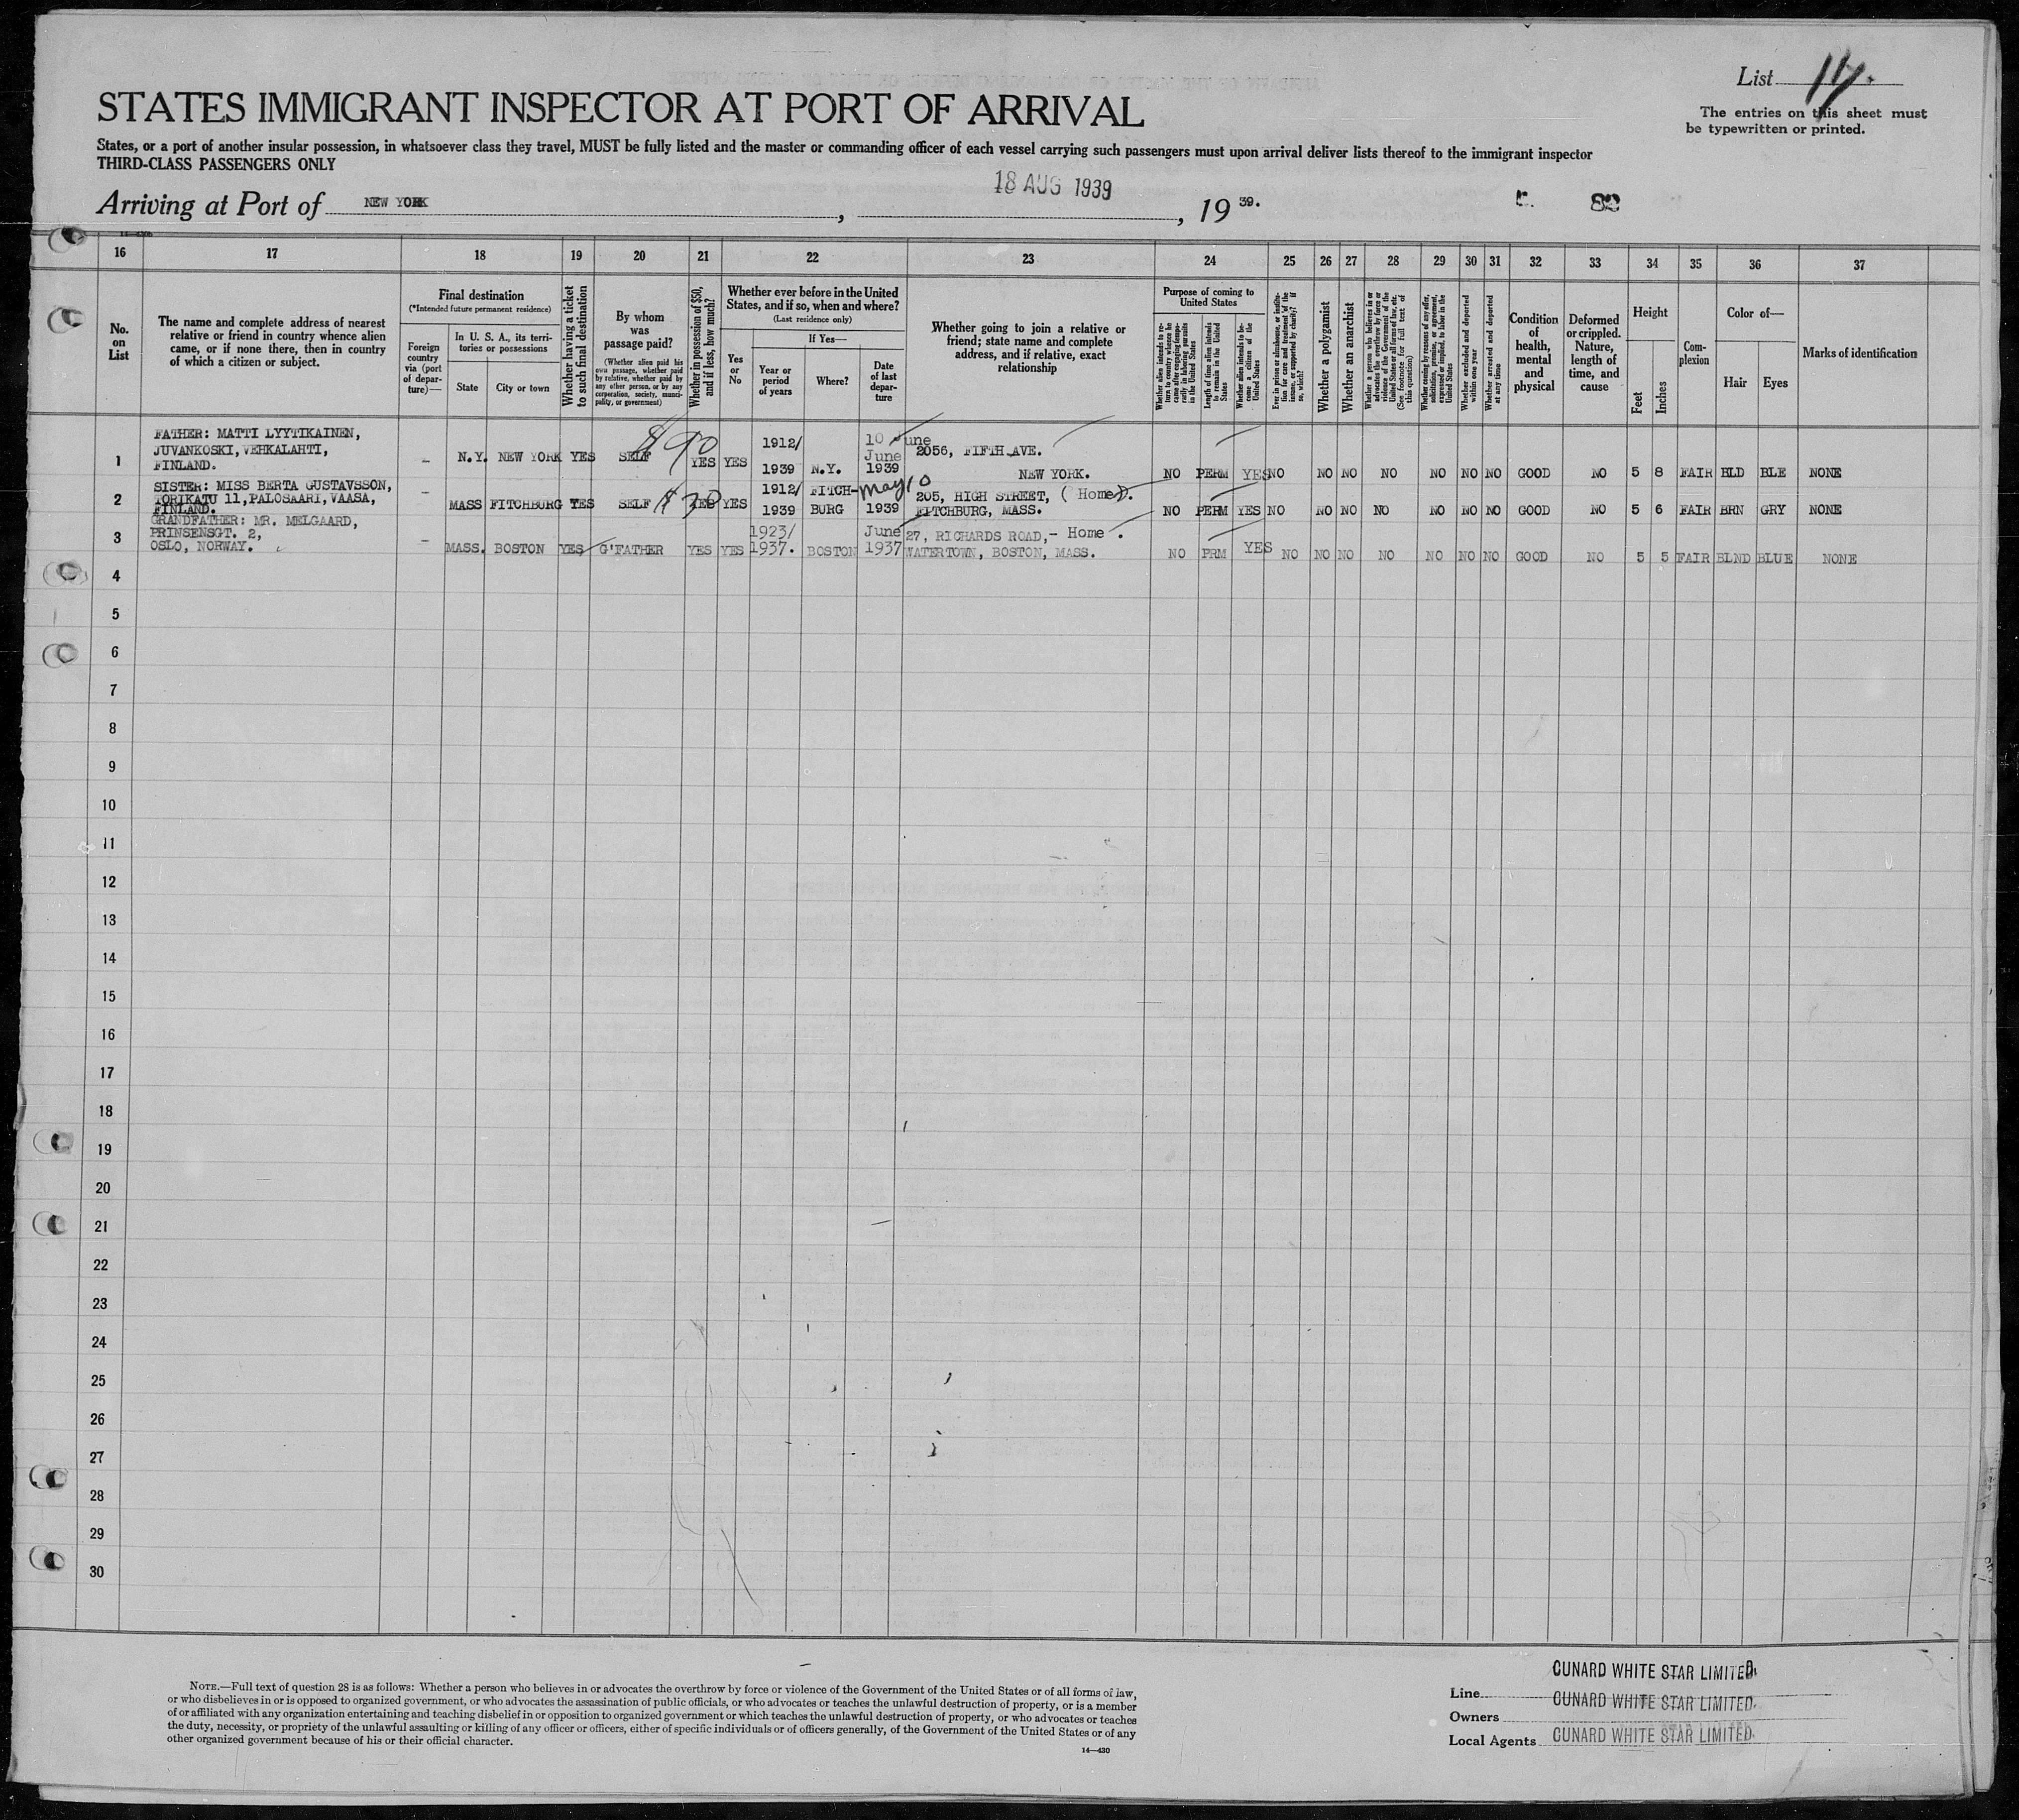 List 14.
The entries on this sheet must
be typewritten or printed.
STATES IMMIGRANT INSPECTOR AT PORT OF ARRIVAL
States, or a port of another insular possession, in whatsoever class they travel, MUST be fully listed and the master or commanding officer of each vessel carrying such passengers must upon arrival deliver lists thereof to the immigrant inspector
THIRD-CLASS PASSENGERS ONLY
Arriving at Port of NEW YORK, 18 AUG 1939, 19 39.
82
16 17 18 19 20 21 22 23 24 25 26 27 28 29 30 31 32 33 34 35 36 37
No. on List
The name and complete address of nearest
relative or friend in country whence alien
came, or if none there, then in country
of which a citizen or subject.
Final destination
(*Intended future permanent residence)
Foreign country via (port of departure)—
In U. S. A., its territories or possessions
State
City or town
Whether having a ticket to such final destination
By whom was passage paid?
(Whether alien paid his own passage, whether paid by relative, whether paid by any other person, or by any corporation, society, municipality, or government)
Whether in possession of $50, and if less, how much?
Whether ever before in the United
States, and if so, when and where?
(Last residence only)
Yes or No
If Yes—
Year or period of years
Where?
Date of last departure
Whether going to join a relative or
friend; state name and complete
address, and if relative, exact
relationship
Purpose of coming to United States
Whether alien intends to return to country whence he came after engaging temporarily in laboring pursuits in the United States
Length of time alien intends to remain in the United States
Whether alien intends to become a citizen of the United States
Ever in prison or almshouse, or institution for care and treatment of the insane, or supported by charity? If so, which?
Whether a polygamist
Whether an anarchist
Whether a person who believes in or advocates the overthrow by force or violence of the Government of the United States or all forms of law, etc. (See footnote for full text of this question)
Whether coming by reasons of any offer, solicitation, promise, or agreement, expressed or implied, to labor in the United States
Whether excluded and deported within one year
Whether arrested and deported at any time
Condition of health, mental and physical
Deformed or crippled. Nature, length of time, and cause
Height
Feet
Inches
Complexion
Color of—
Hair
Eyes
Marks of identification
1
FATHER: MATTI LYYTIKAINEN,
JUVANKOSKI, VEHKALAHTI,
FINLAND.
– N.Y. NEW YORK YES SELF $90 YES YES 1912/ 1939 N.Y. 10 June June 1939 2056, FIFTH AVE.
NEW YORK. NO PERM YES NO NO NO NO NO NO NO GOOD NO 5 8 FAIR BLD BLE NONE
2
SISTER: MISS BERTA GUSTAVSSON,
TORIKATU 11, PALOSAARI, VAASA,
FINLAND.
– MASS FITCHBURG YES SELF $30 YES YES 1912/ 1939 FITCH- BURG May 10 1939 205, HIGH STREET, (Home).
FITCHBURG, MASS. NO PERM YES NO NO NO NO NO NO NO GOOD NO 5 6 FAIR BRN GRY NONE
3
GRANDFATHER: MR. MELGAARD,
PRINSENSGT. 2,
OSLO, NORWAY.
– MASS. BOSTON YES G'FATHER YES YES 1923/ 1937. BOSTON June 1937 27, RICHARDS ROAD,- Home.
WATERTOWN, BOSTON, MASS. NO PRM YES NO NO NO NO NO NO NO GOOD NO 5 5 FAIR BLND BLUE NONE
4
5
6
7
8
9
10
11
12
13
14
15
16
17
18
19
20
21
22
23
24
25
26
27
28
29
30
NOTE.—Full text of question 28 is as follows: Whether a person who believes in or advocates the overthrow by force or violence of the Government of the United States or of all forms of law,
or who disbelieves in or is opposed to organized government, or who advocates the assassination of public officials, or who advocates or teaches the unlawful destruction of property, or is a member
of or affiliated with any organization entertaining and teaching disbelief in or opposition to organized government or which teaches the unlawful destruction of property, or who advocates or teaches
the duty, necessity, or propriety of the unlawful assaulting or killing of any officer or officers, either of specific individuals or of officers generally, of the Government of the United States or of any
other organized government because of his or their official character.
14—430
Line CUNARD WHITE STAR LIMITED.
Owners CUNARD WHITE STAR LIMITED.
Local Agents CUNARD WHITE STAR LIMITED.